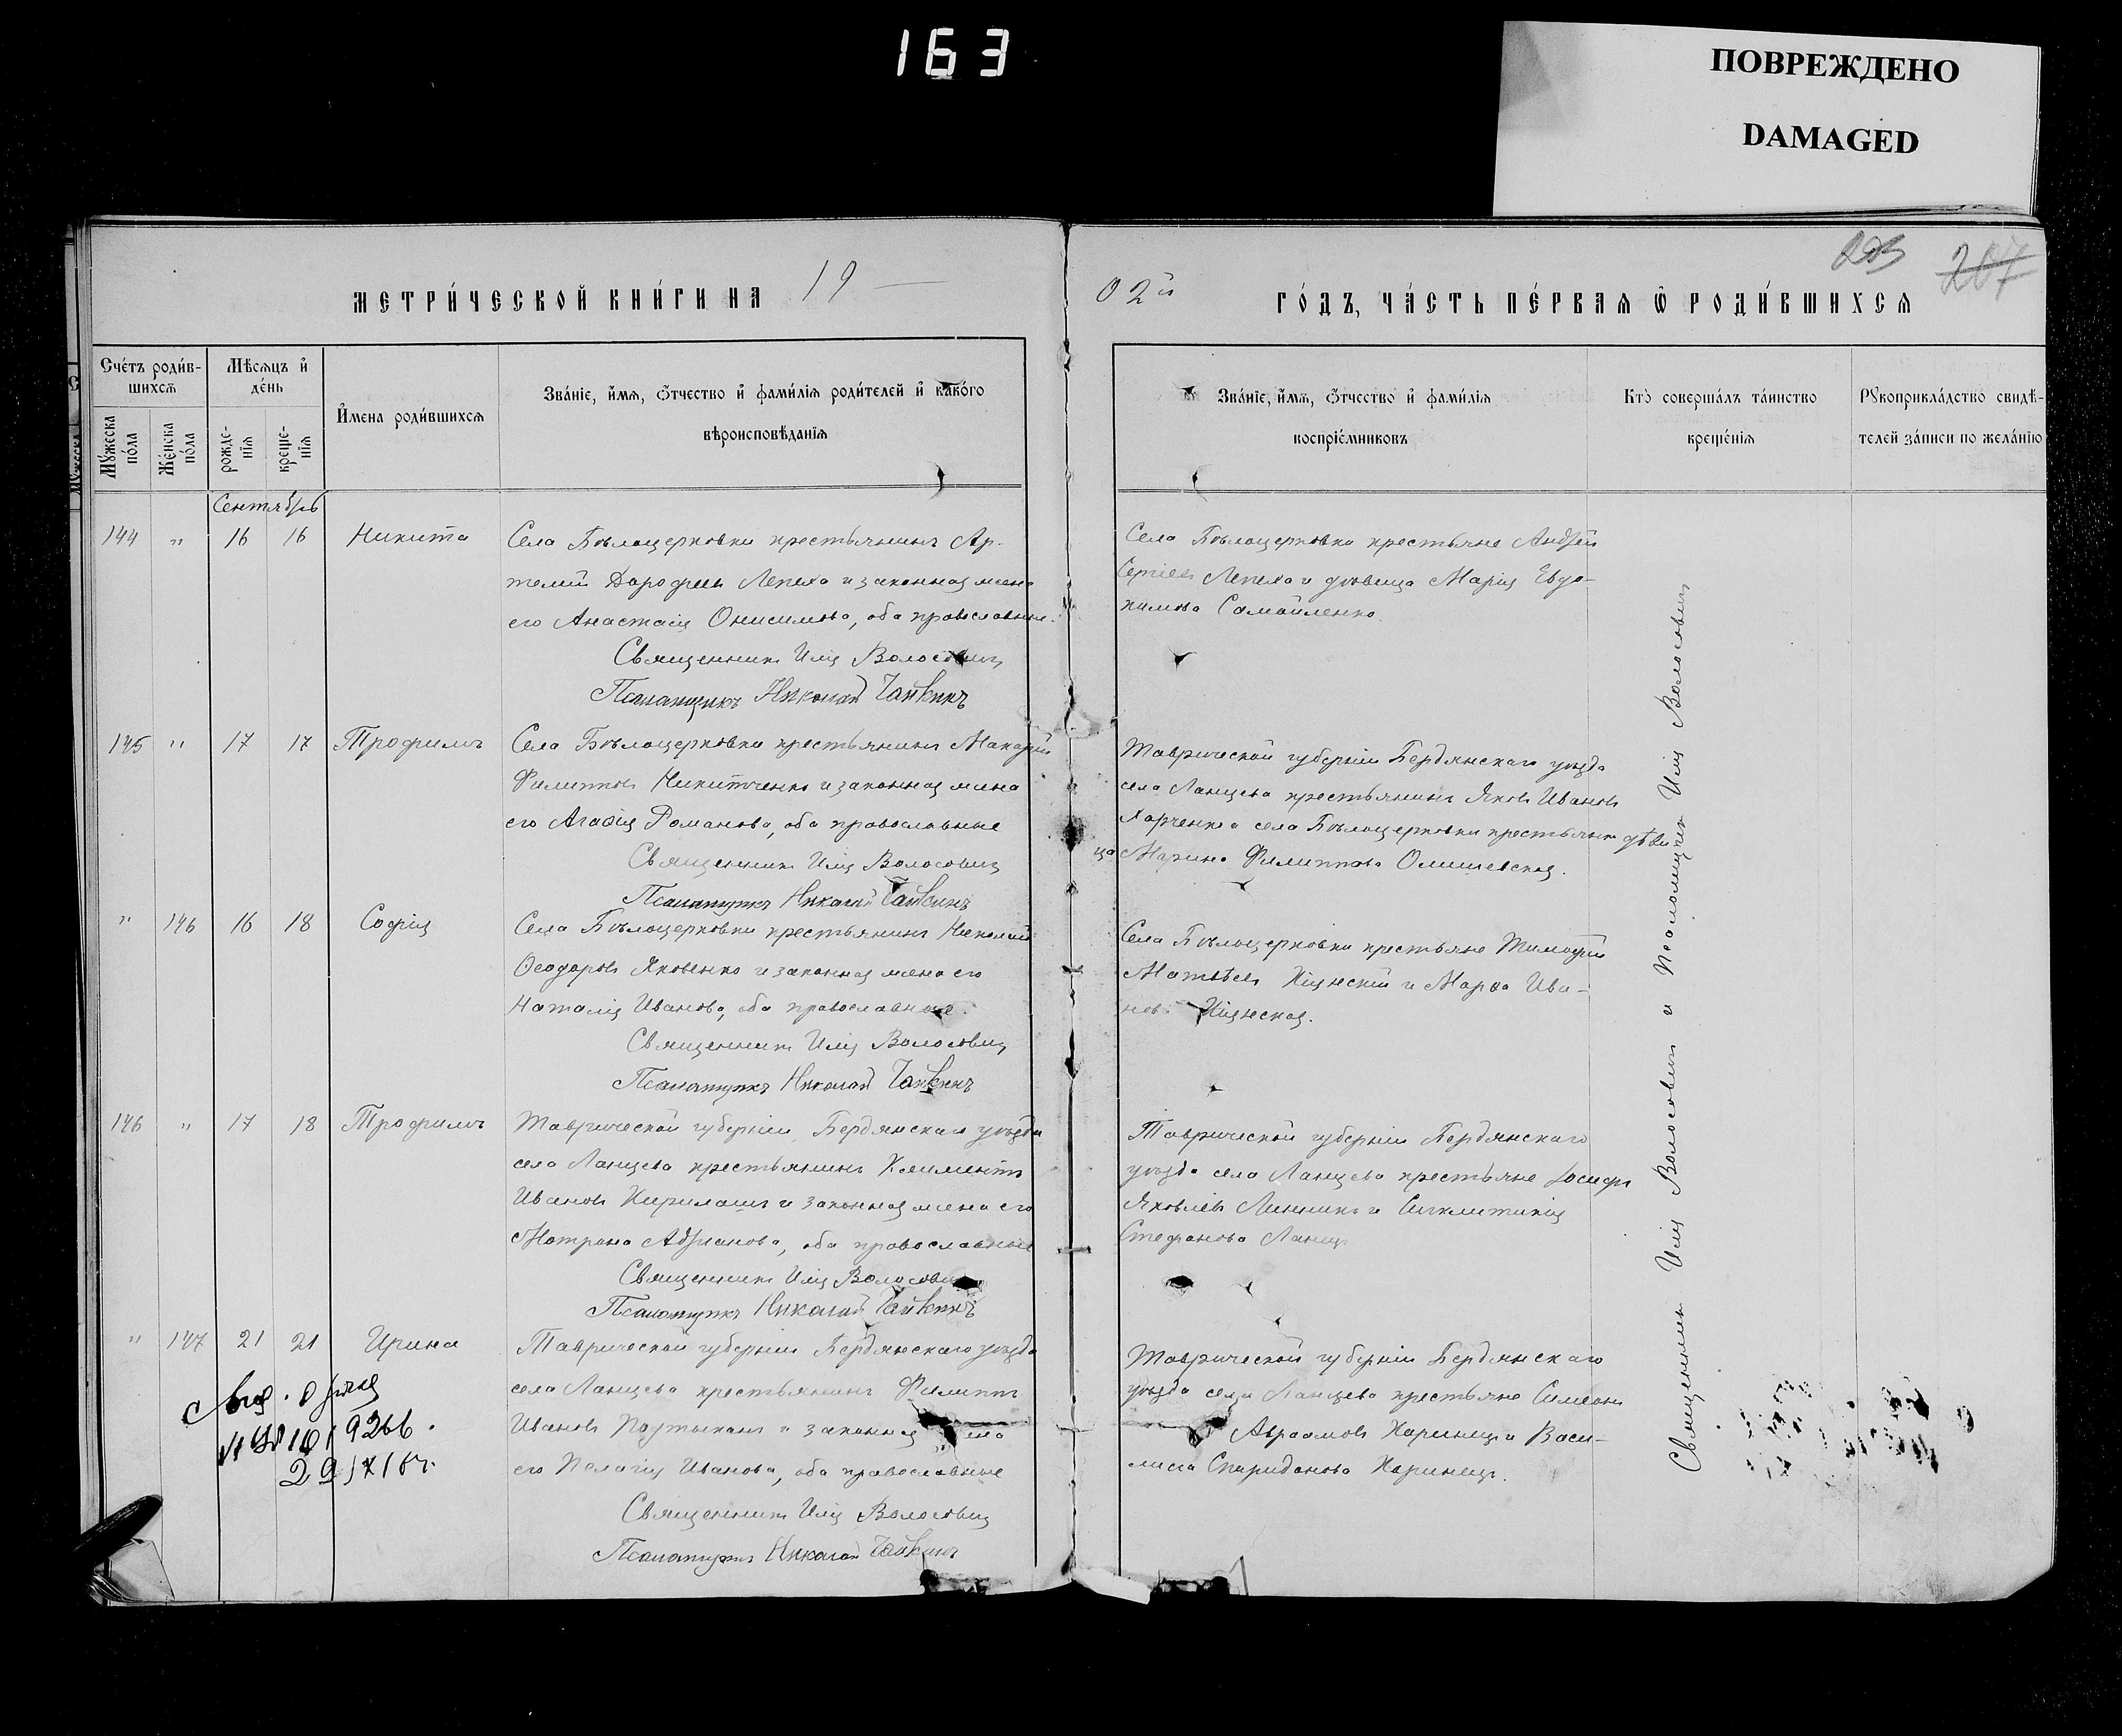 163
ПОВРЕЖДЕНО
DAMAGED
207
МЕТРИ́ЧЕСКОЙ КНИ́ГИ НА 19
02й ГО́ДЪ, ЧА́СТЬ ПЕ́РВАЯ Ѿ РОДИ́ВШИХСЯ
Сче́тъ роди́в-
шихсѧ
Мѣ́сѧцъ и҆
де́нь
Мꙋ́жеска по́ла
Же́нска по́ла
рожде-
нїѧ
креще-
нїѧ
И҆мена роди́вшихсѧ
Зва́нїе, и҆́мѧ, ѻ҆́тчество и҆ фами́лїѧ роди́телей и҆ како́го
вѣроисповѣ́данїѧ
Зва́нїе, и҆́мѧ, ѻ҆́тчество и҆ фами́лїѧ
воспрїе́мниковъ
Кто̀ соверша́лъ та́инство
креще́нїѧ
Рꙋкоприкла́дство свидѣ́-
телей за́писи по жела́нїю
Сентябрь
144 " 16 16 Никита
Села Бѣлоцерковки крестьянинъ Ар-
темій Дорофеевъ Лепеха и законная жена
его Анастасія Онисимова, оба православные.
Священникъ Илія Волосовичъ
Псаломщикъ Николай Чайкинъ
Села Бѣлоцерковки крестьяне Андрей
Сергіевъ Лепеха и дѣвица Марія Евдо-
кимова Самойленко.
145 " 17 17 Трофимъ
Села Бѣлоцерковки крестьянинъ Макарій
Филипповъ Никитченко и законная жена
его Агафія Романова, оба православные
Священникъ Илія Волосовичъ
Псаломщикъ Николай Чайкинъ
Таврической губерніи Бердянскаго уѣзда
села Ланцева крестьянинъ Яковъ Ивановъ
Харченко и села Бѣлоцерковки крестьянка дѣви
ца Марина Филиппова Олишевская.
" 146 16 18 Софія
Села Бѣлоцерковки крестьянинъ Николай
Ѳеодоровъ Яковенко и законная жена его
Наталія Иванова, оба православные.
Священникъ Илія Волосовичъ
Псаломщикъ Николай Чайкинъ
Села Бѣлоцерковки крестьяне Тимофей
Матвѣевъ и Марѳа Ива-
нова
146 " 17 18 Трофимъ
Таврической губерніи Бердянскаго уѣзда
села Ланцева крестьянинъ Климентъ
Ивановъ Кирилашъ и законная жена его
Матрона Адріанова, оба православные
Священникъ Илія Волосовичъ
Псаломщикъ Николай Чайкинъ
Таврической губерніи Бердянскаго
уѣзда села Ланцева крестьяне Іосифъ
Яковлевъ Линникъ и Синклитикія
Стефанова
" 147 21 21 Ирина
Таврической губерніи Бердянскаго уѣзда
села Ланцева крестьянинъ Филиппъ
Ивановъ и законная жена
его Пелагія Иванова, оба православные
Священникъ Илія Волосовичъ
Псаломщикъ Николай Чайкинъ
Таврической губерніи Бердянскаго
уѣзда села Ланцева крестьяне Симеонъ
Авраамовъ Харинецъ и Васи-
лиса Спиридонова Харинецъ.
Священникъ Илія Волосовичъ и Псаломщикъ Илія Волосовичъ